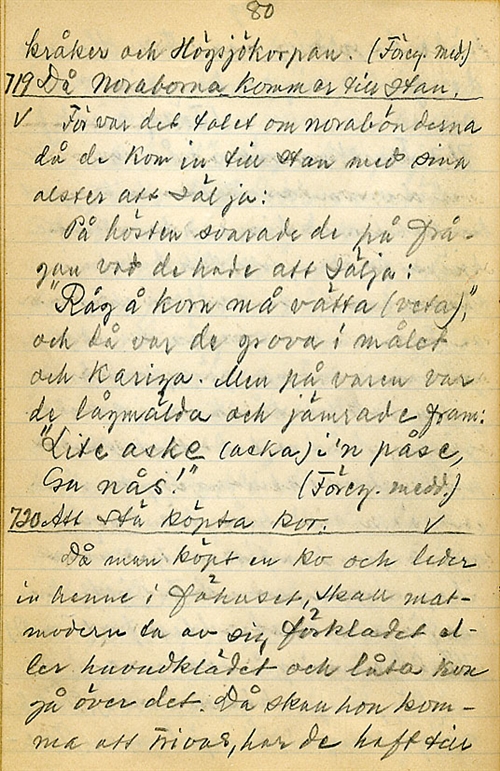 80
kråker och Högsjökorpan. (Föreg. med.)
719 Då Noraborna kommar till Stan.
√ Förvar det talet om norabönderna
då de kom in till Stan med sina
alster att Sälja:
På hösten svarade de på frå-
gan vad de hade att Sälja:
"Råg å korn må vätta (veta),"
och då var de grova i målet
och kariga. Men på våren var
de lågmälda och jämrade fram:
"Lite aske (aska) i'n påse,
Gu nås!" (Föreg. medd.)
720 Att stä köpta kor. √
Då man köpt en ko och leder
in henne i fähuset, skall mat-
modern ta av sig förklädet el-
ler huvudklädet och låta kon
gå över det. Då skall hon kom-
ma att trivas, har de haft till